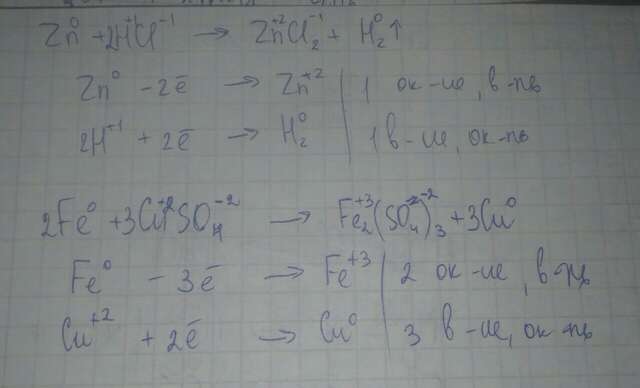 Zn⁰ + 2H⁺¹Cl⁻¹ → Zn⁺²Cl₂⁻¹ + H₂⁰↑
Zn⁰ − 2ē → Zn⁺² | 1 ок-ие, в-ль
2H⁺¹ + 2ē → H₂⁰ | 1 в-ие, ок-ль
2Fe⁰ + 3Cu⁺²SO₄⁻² → Fe₂⁺³(SO₄⁻²)₃⁻² + 3Cu⁰
Fe⁰ − 3ē → Fe⁺³ | 2 ок-ие, в-ль
Cu⁺² + 2ē → Cu⁰ | 3 в-ие, ок-ль